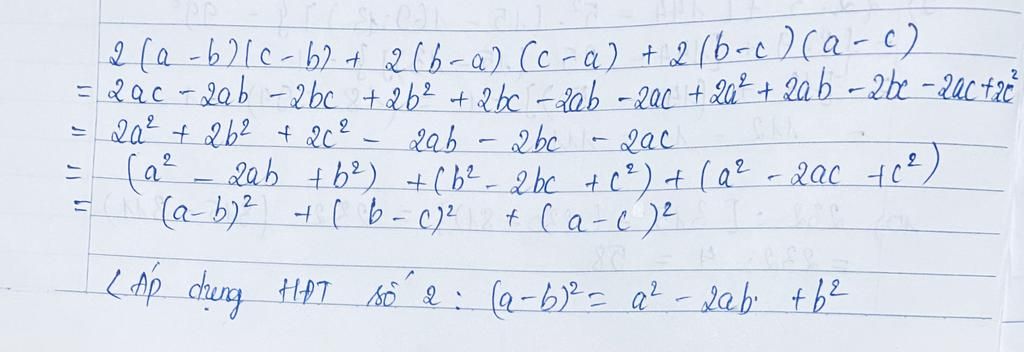 2(a-b)(c-b) + 2(b-a)(c-a) + 2(b-c)(a-c)
= 2ac - 2ab - 2bc + 2b² + 2bc - 2ab - 2ac + 2a² + 2ab - 2bc - 2ac + 2c²
= 2a² + 2b² + 2c² - 2ab - 2bc - 2ac
= (a² - 2ab + b²) + (b² - 2bc + c²) + (a² - 2ac + c²)
= (a-b)² + (b-c)² + (a-c)²
(Áp dụng HĐT số 2 : (a-b)² = a² - 2ab + b²